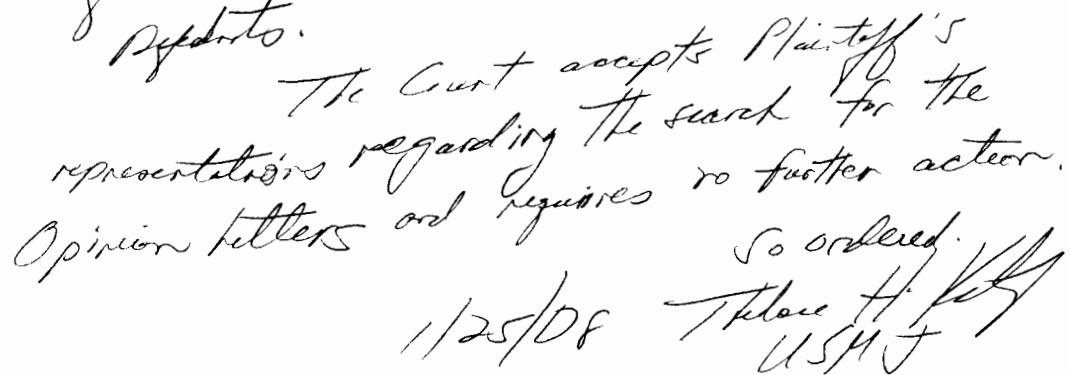 Defendants.
The Court accepts Plaintiff's
representations regarding the search for the
Opinion Letters and requires no further action.
So ordered.
1/25/08 Theodore H. Katz
USMJ